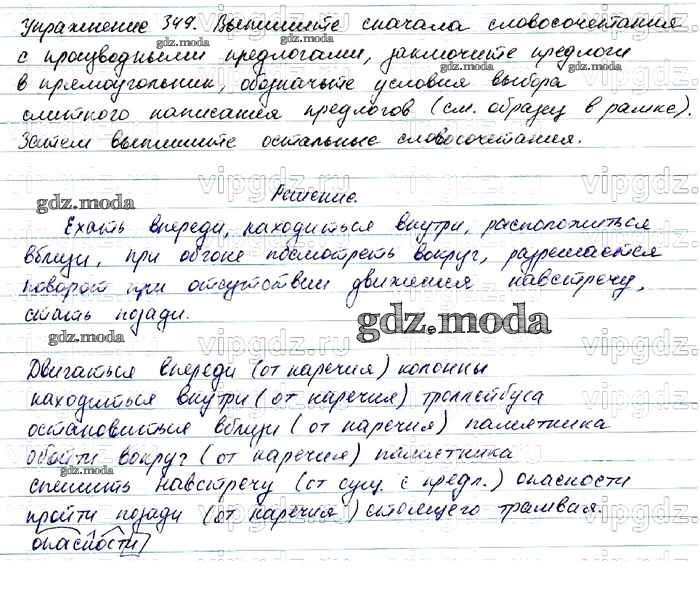 Упражнение 349. Выпишите сначала словосочетания
с производными предлогами, заключите предлоги
в прямоугольник, обозначьте условия выбора
слитного написания предлогов (см. образец в рамке).
Затем выпишите остальные словосочетания.
Решение.
Ехать впереди, находиться внутри, расположиться
вблизи, при обгоне посмотреть вокруг, разрешается
поворот при отсутствии движения навстречу,
стать позади.
gdz.moda
Двигаться впереди (от наречия) колонны
находиться внутри (от наречия) троллейбуса
остановиться вблизи (от наречия) памятника
обойти вокруг (от наречия) памятника
спешить навстречу (от сущ. с предл.) опасности
пройти позади (от наречия) стоящего трамвая.
опасности